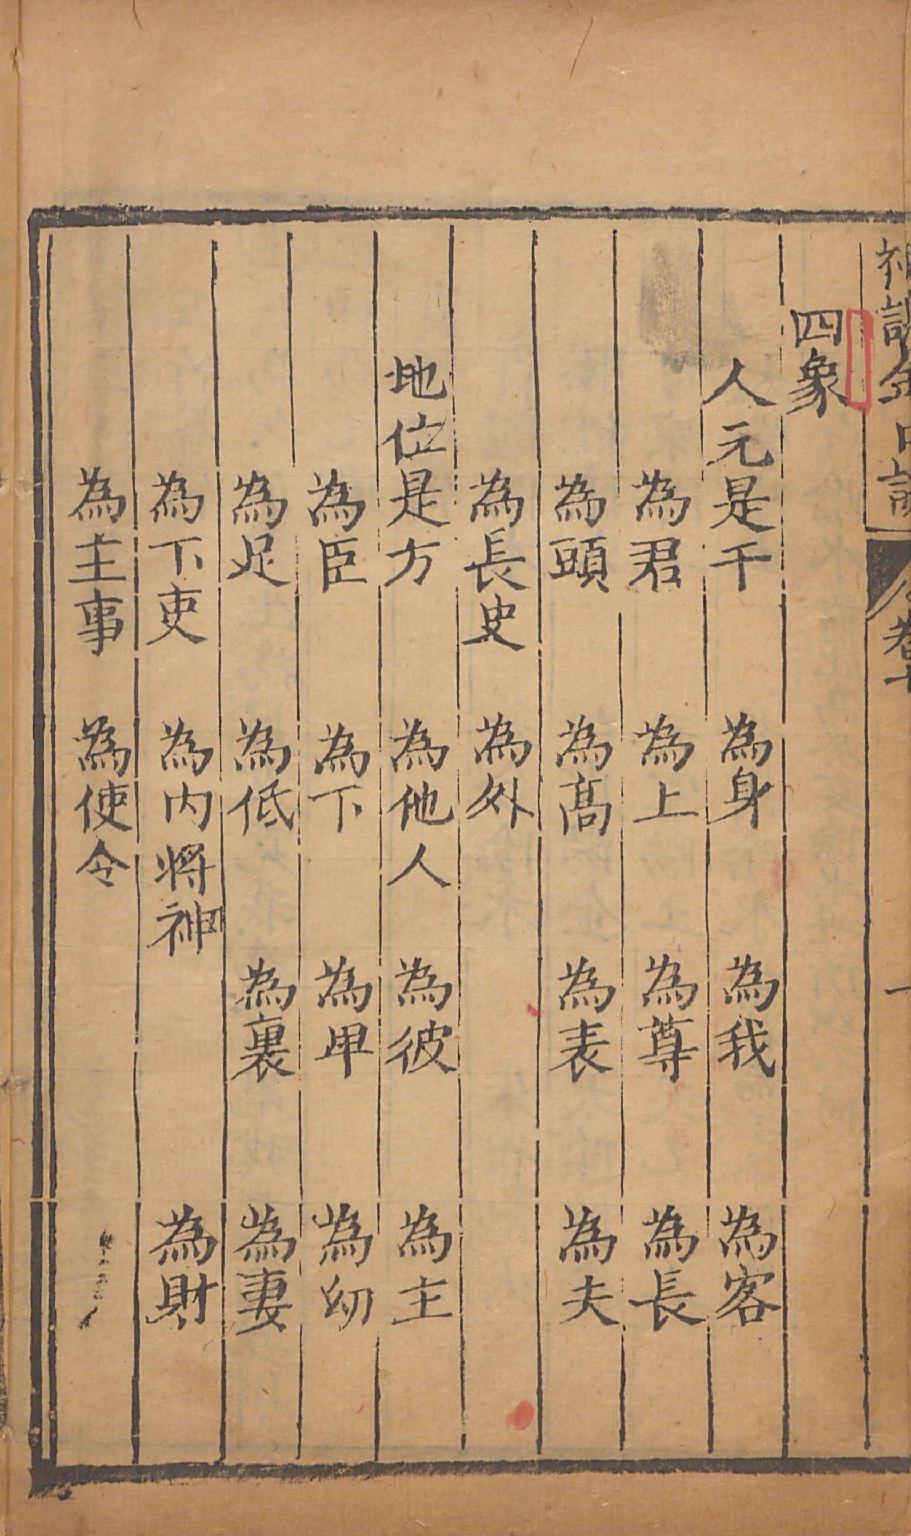 四象
人元是干　為身　為我　為客
為君　為上　為尊　為長
為頭　為高　為表　為夫
為長史　為外
地位是方　為他人　為彼　為主
為臣　為下　為卑　為幼
為足　為低　為裏　為妻
為下吏　為内將神　為財
為主事　為使令